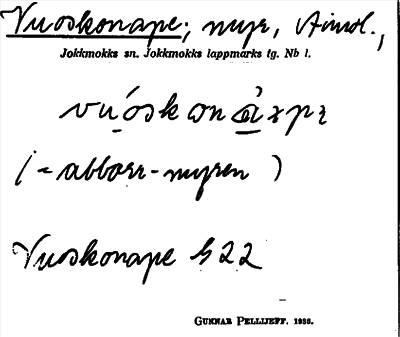 Vuoskonape; myr,
Jokkmokks sn. Jokkmokks lappmarks tg. Nb l.
(= abborr-myren )
Vuoskonape G22
GUNNAR PELLIJEFF. 1938.